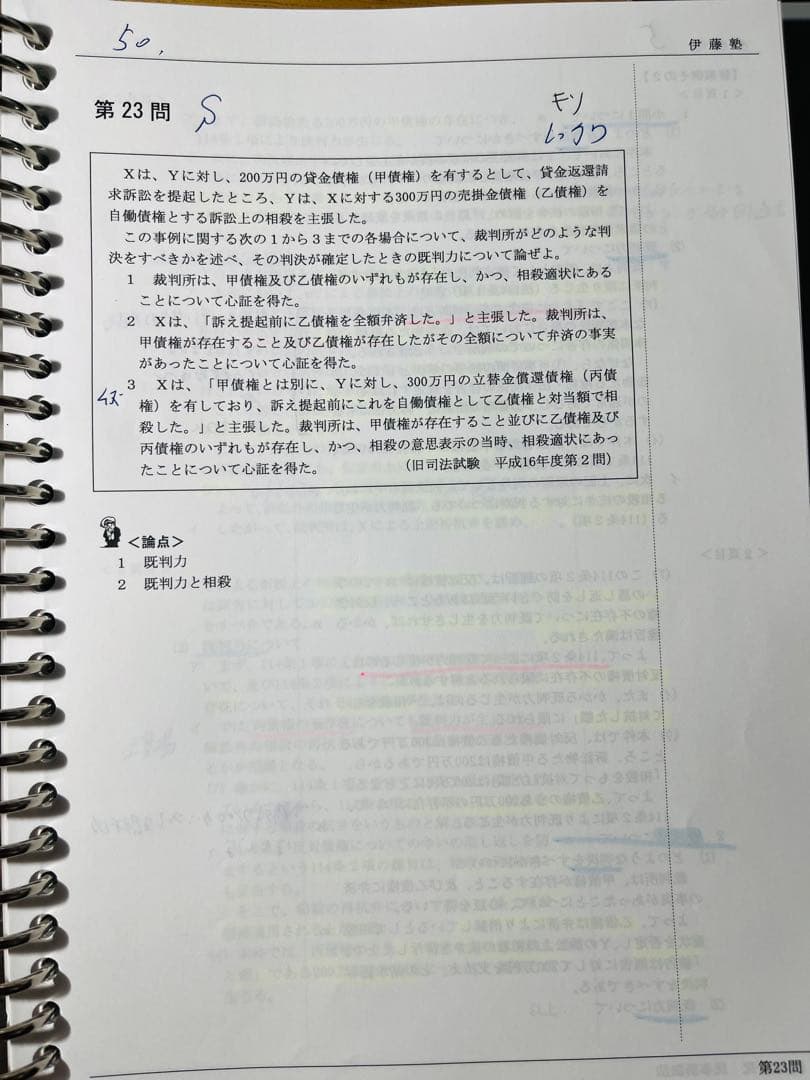 50.
伊藤塾
第23問
Xは、Yに対し、200万円の貸金債権（甲債権）を有するとして、貸金返還請
求訴訟を提起したところ、Yは、Xに対する300万円の売掛金債権（乙債権）を
自働債権とする訴訟上の相殺を主張した。
この事例に関する次の1から3までの各場合について、裁判所がどのような判
決をすべきかを述べ、その判決が確定したときの既判力について論ぜよ。
1 裁判所は、甲債権及び乙債権のいずれもが存在し、かつ、相殺適状にある
ことについて心証を得た。
2 Xは、「訴え提起前に乙債権を全額弁済した。」と主張した。裁判所は、
甲債権が存在すること及び乙債権が存在したがその全額について弁済の事実
があったことについて心証を得た。
3 Xは、「甲債権とは別に、Yに対し、300万円の立替金償還債権（丙債
権）を有しており、訴え提起前にこれを自働債権として乙債権と対当額で相
殺した。」と主張した。裁判所は、甲債権が存在すること並びに乙債権及び
丙債権のいずれもが存在し、かつ、相殺の意思表示の当時、相殺適状にあっ
たことについて心証を得た。（旧司法試験 平成16年度第2問）
＜論点＞
1 既判力
2 既判力と相殺
第23問